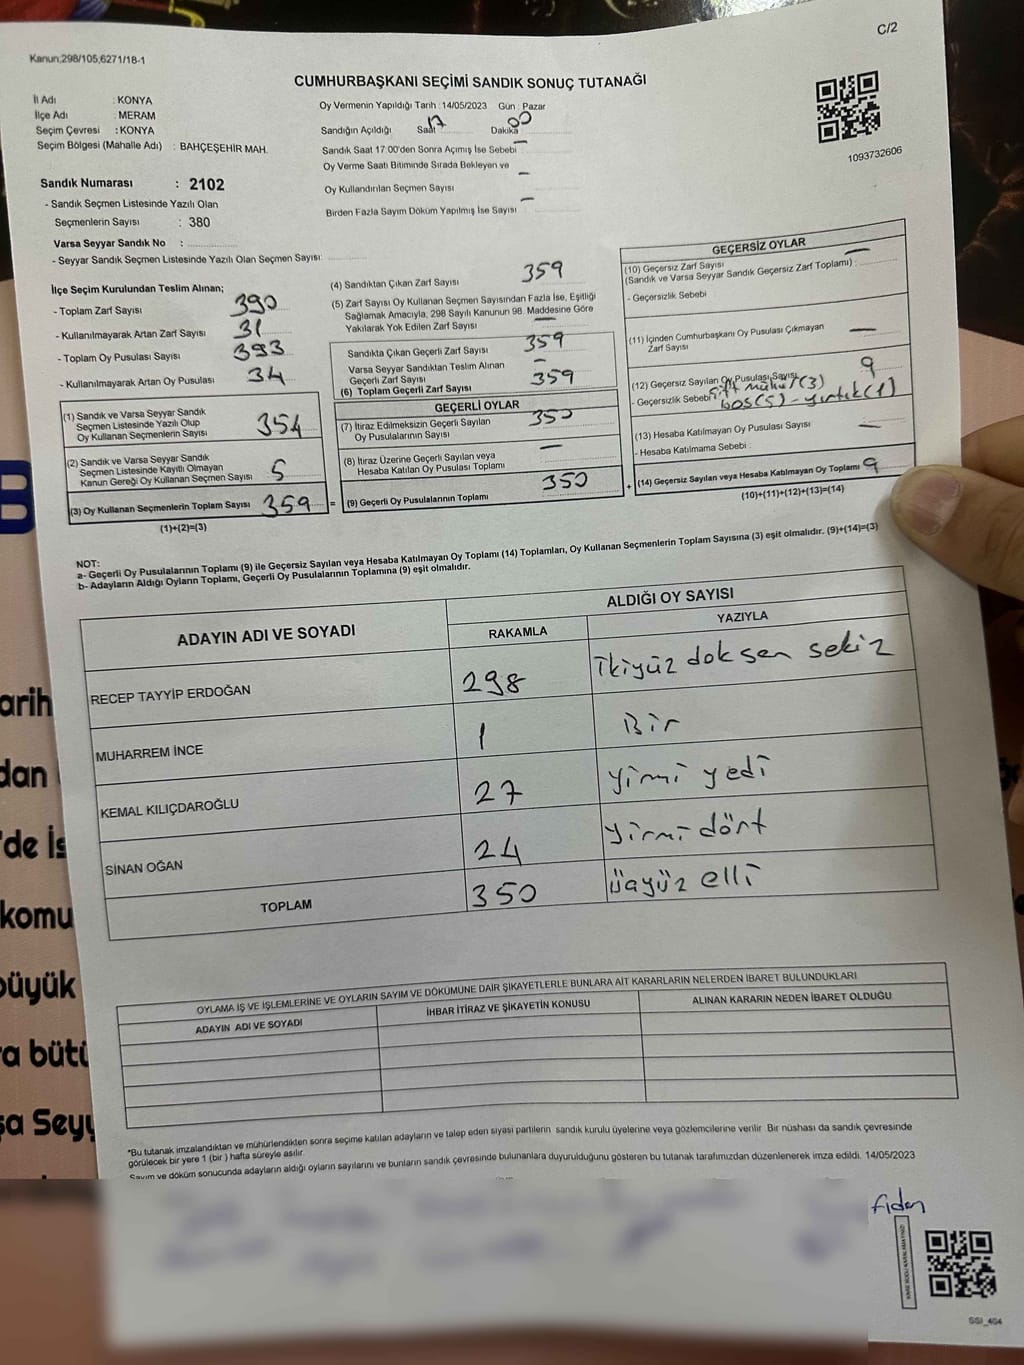 C/2
Kanun;298/105;6271/18-1
CUMHURBAŞKANI SEÇİMİ SANDIK SONUÇ TUTANAĞI
İl Adı : KONYA
İlçe Adı : MERAM
Seçim Çevresi : KONYA
Seçim Bölgesi (Mahalle Adı) : BAHÇEŞEHİR MAH.
Oy Vermenin Yapıldığı Tarih : 14/05/2023 Gün : Pazar
Sandığın Açıldığı Saat 17 Dakika 00
Sandık Saat 17:00'den Sonra Açımış İse Sebebi : —
Oy Verme Saati Bitiminde Sırada Bekleyen ve
Oy Kullandırılan Seçmen Sayısı —
Birden Fazla Sayım Döküm Yapılmış İse Sayısı —
1093732606
Sandık Numarası : 2102
- Sandık Seçmen Listesinde Yazılı Olan
Seçmenlerin Sayısı : 380
Varsa Seyyar Sandık No :
- Seyyar Sandık Seçmen Listesinde Yazılı Olan Seçmen Sayısı:
İlçe Seçim Kurulundan Teslim Alınan;
- Toplam Zarf Sayısı 390
- Kullanılmayarak Artan Zarf Sayısı 31
- Toplam Oy Pusulası Sayısı 393
- Kullanılmayarak Artan Oy Pusulası 34
(1) Sandık ve Varsa Seyyar Sandık
Seçmen Listesinde Yazılı Olup
Oy Kullanan Seçmenlerin Sayısı 354
(2) Sandık ve Varsa Seyyar Sandık
Seçmen Listesinde Kayıtlı Olmayan
Kanun Gereği Oy Kullanan Seçmen Sayısı 5
(3) Oy Kullanan Seçmenlerin Toplam Sayısı 359 =
(1)+(2)=(3)
(4) Sandıktan Çıkan Zarf Sayısı 359
(5) Zarf Sayısı Oy Kullanan Seçmen Sayısından Fazla İse, Eşitliği
Sağlamak Amacıyla, 298 Sayılı Kanunun 98. Maddesine Göre
Yakılarak Yok Edilen Zarf Sayısı —
Sandıkta Çıkan Geçerli Zarf Sayısı 359
Varsa Seyyar Sandıktan Teslim Alınan
Geçerli Zarf Sayısı —
(6) Toplam Geçerli Zarf Sayısı 359
GEÇERLİ OYLAR
(7) İtiraz Edilmeksizin Geçerli Sayılan
Oy Pusulalarının Sayısı 350
(8) İtiraz Üzerine Geçerli Sayılan veya
Hesaba Katılan Oy Pusulası Toplamı —
(9) Geçerli Oy Pusulalarının Toplamı 350 +
GEÇERSİZ OYLAR
(10) Geçersiz Zarf Sayısı —
(Sandık ve Varsa Seyyar Sandık Geçersiz Zarf Toplamı) :
- Geçersizlik Sebebi
(11) İçinden Cumhurbaşkanı Oy Pusulası Çıkmayan
Zarf Sayısı —
(12) Geçersiz Sayılan Oy Pusulası Sayısı 9
- Geçersizlik Sebebi çift mühür(3)
boş(5) - yırtık(1)
(13) Hesaba Katılmayan Oy Pusulası Sayısı —
- Hesaba Katılmama Sebebi :
(14) Geçersiz Sayılan veya Hesaba Katılmayan Oy Toplamı 9
(10)+(11)+(12)+(13)=(14)
NOT:
a- Geçerli Oy Pusulalarının Toplamı (9) ile Geçersiz Sayılan veya Hesaba Katılmayan Oy Toplamı (14) Toplamları, Oy Kullanan Seçmenlerin Toplam Sayısına (3) eşit olmalıdır. (9)+(14)=(3)
b- Adayların Aldığı Oyların Toplamı, Geçerli Oy Pusulalarının Toplamına (9) eşit olmalıdır.
ADAYIN ADI VE SOYADI
ALDIĞI OY SAYISI
RAKAMLA YAZIYLA
RECEP TAYYİP ERDOĞAN 298 İkiyüz doksan sekiz
MUHARREM İNCE 1 Bir
KEMAL KILIÇDAROĞLU 27 Yirmi yedi
SİNAN OĞAN 24 Yirmi dört
TOPLAM 350 üçyüz elli
OYLAMA İŞ VE İŞLEMLERİNE VE OYLARIN SAYIM VE DÖKÜMÜNE DAİR ŞİKAYETLERLE BUNLARA AİT KARARLARIN NELERDEN İBARET BULUNDUKLARI
ADAYIN ADI VE SOYADI İHBAR İTİRAZ VE ŞİKAYETİN KONUSU ALINAN KARARIN NEDEN İBARET OLDUĞU
*Bu tutanak imzalandıktan ve mühürlendikten sonra seçime katılan adayların ve talep eden siyasi partilerin sandık kurulu üyelerine veya gözlemcilerine verilir. Bir nüshası da sandık çevresinde
görülecek bir yere 1 (bir ) hafta süreyle asılır.
Sayım ve döküm sonucunda adayların aldığı oyların sayılarını ve bunların sandık çevresinde bulunanlara duyurulduğunu gösteren bu tutanak tarafımızdan düzenlenerek imza edildi. 14/05/2023
Fidan
SSI_404
B
arih
dan
'de İs
komu
büyük
a bütü
şa Seyy